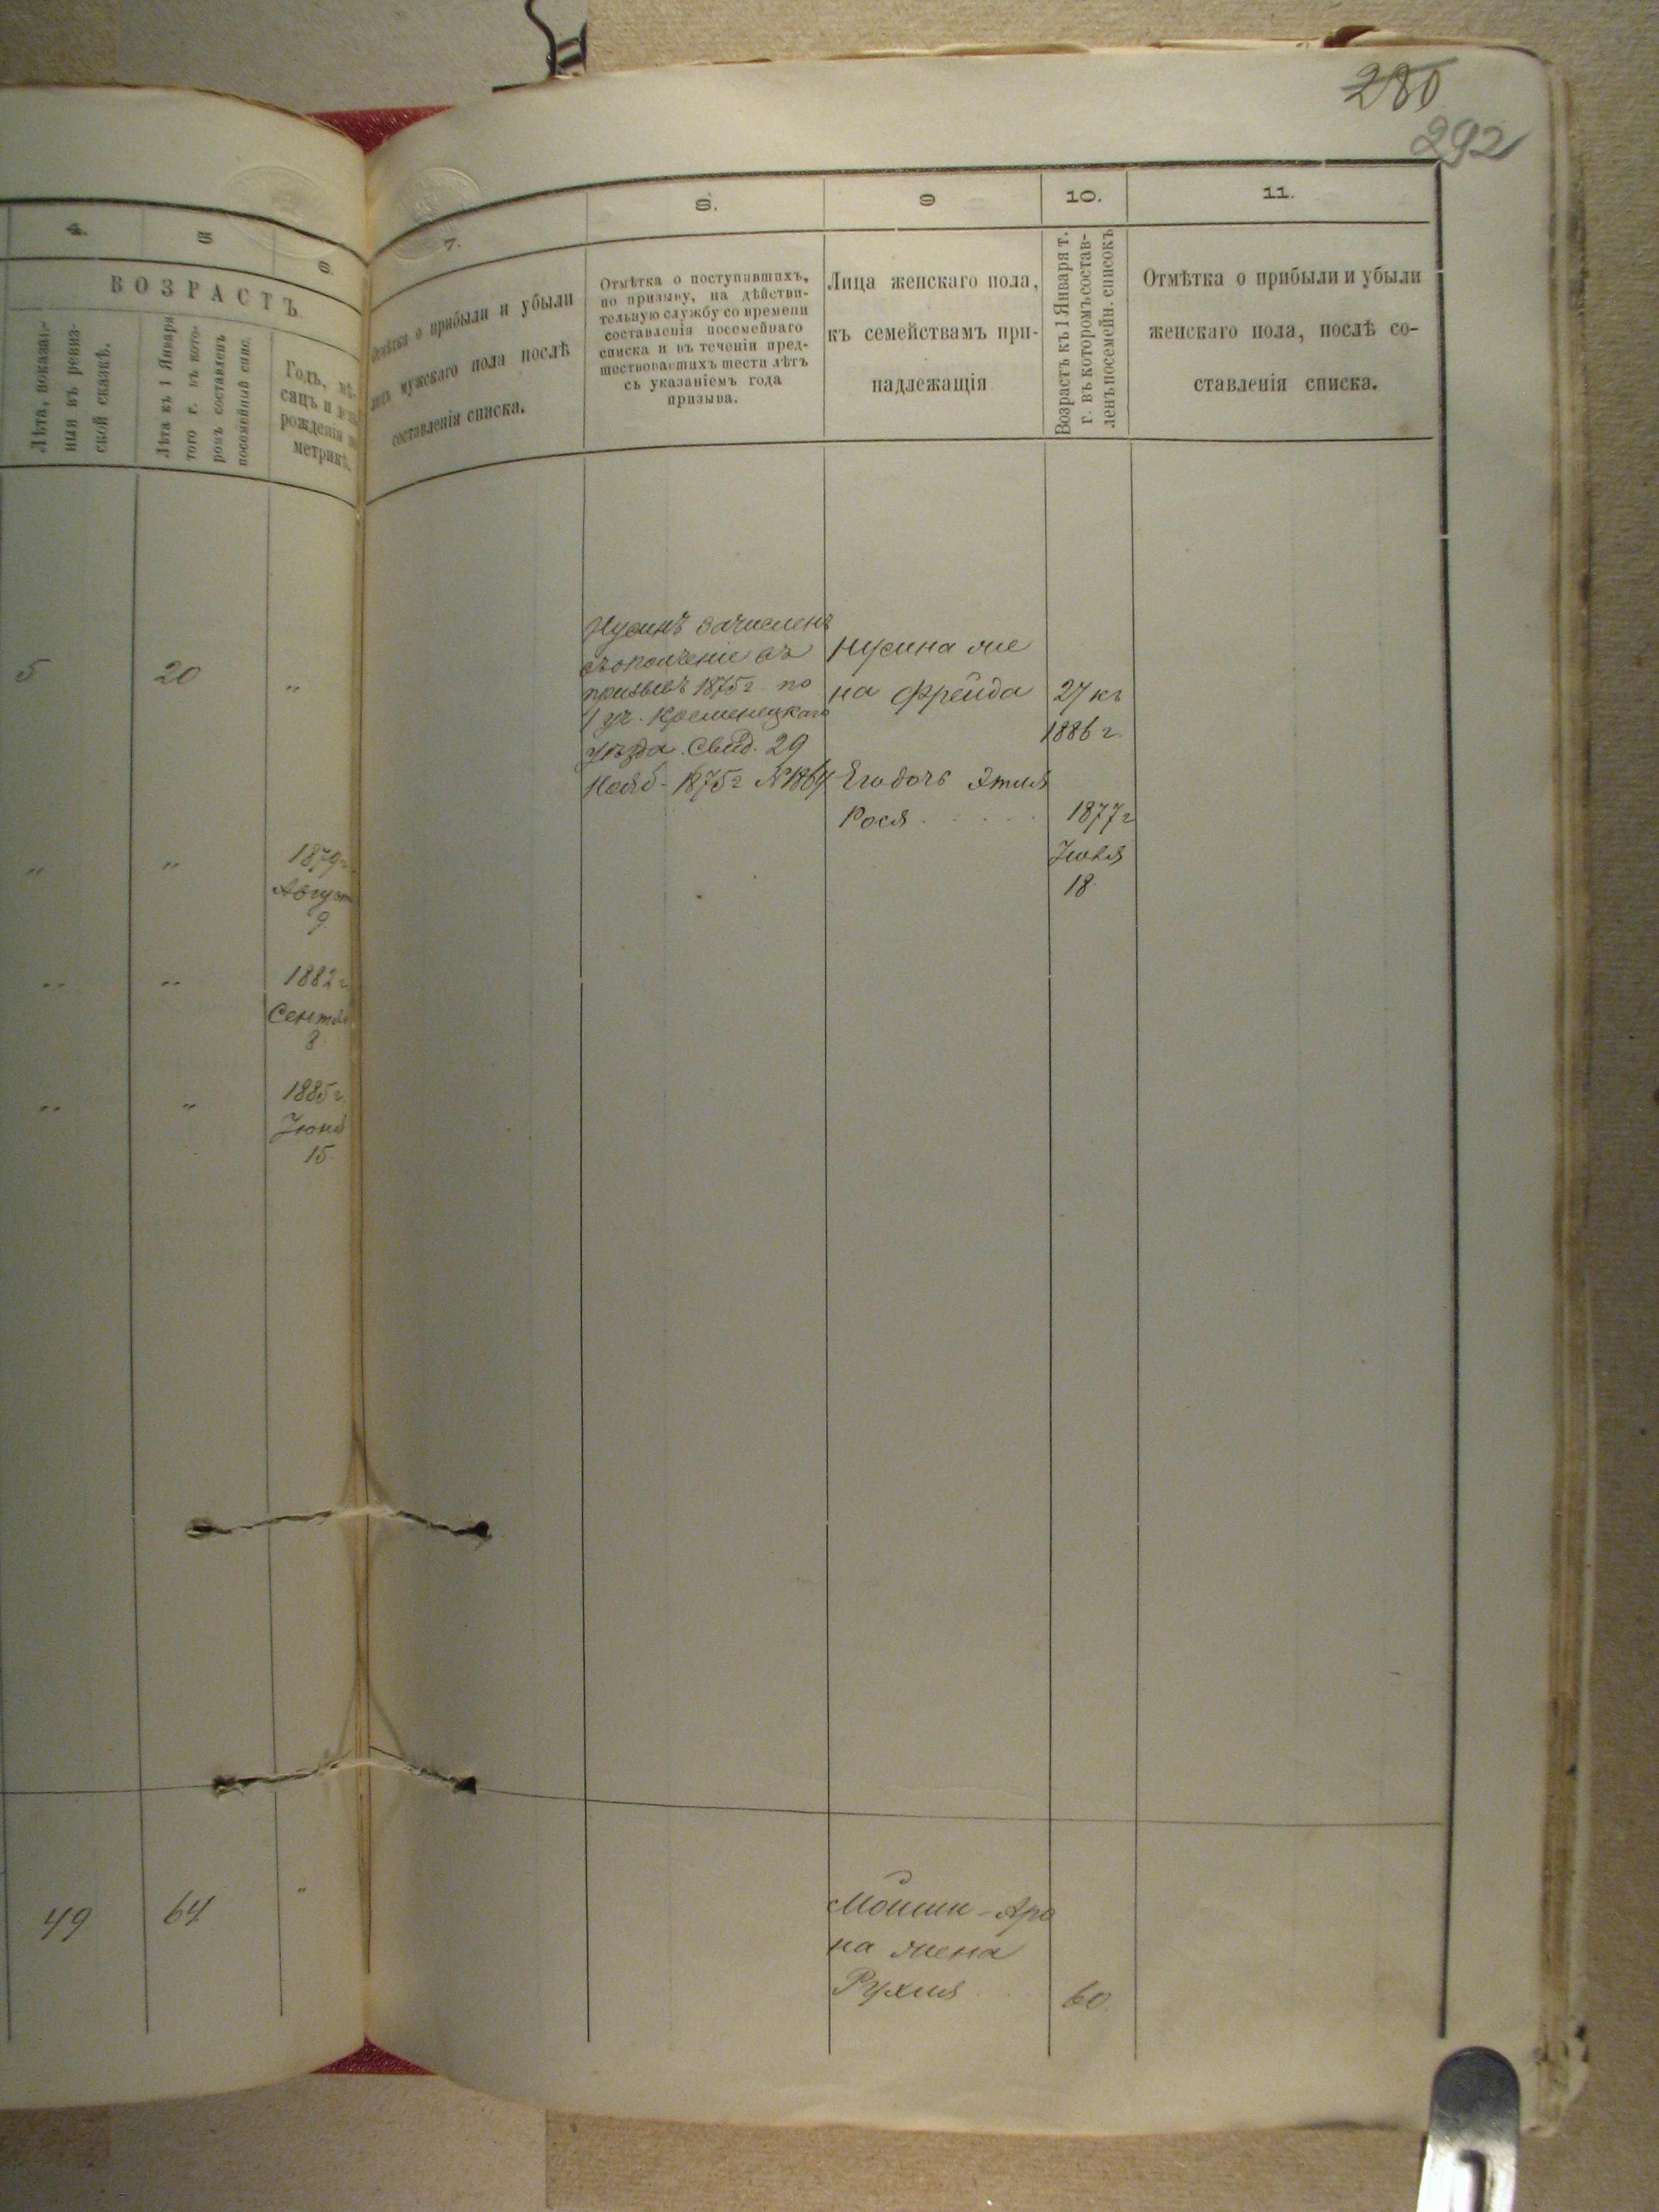 280
292
4.
5
6.
ВОЗРАСТЪ.
Лѣта, показан-
ныя въ ревиз-
ской сказкѣ.
Лѣта къ 1 Января
того г. въ кото-
ромъ составленъ
посемейный спис.
Годъ, мѣ-
сяцъ и день
рожденія по
метрикѣ.
5
20
"
"
"
1879 г.
Август
9
"
"
1882 г.
Сентяб
8
"
"
1885 г.
Іюня
15
49
64
"
7.
8.
9
10.
11.
Отмѣтка о прибыли и убыли
лицъ мужскаго пола послѣ
составленія списка.
Отмѣтка о поступившихъ,
по призыву, на дѣйстви-
тельную службу со времени
составленія посемейнаго
списка и въ теченіи пред-
шествовавшихъ шести лѣтъ
съ указаніемъ года
призыва.
Лица женскаго пола,
къ семействамъ при-
надлежащія
Возрастъ къ 1 Января т.
г. въ которомъ состав-
ленъ посемейн. списокъ
Отмѣтка о прибыли и убыли
женскаго пола, послѣ со-
ставленія списка.
Нусинъ зачисленъ
въ ополченіе въ
призывъ 1875 г. по
1 уч. Кременецкаго
уѣзда. Свид. 29
Нояб. 1875 г № 1864
Нусина же
на Фрейда
27 къ
1886 г.
Его дочь Этля
Рося . . . . .
1877 г
Іюля
18
Мойши-Аро
на жена
Рухля . .
60